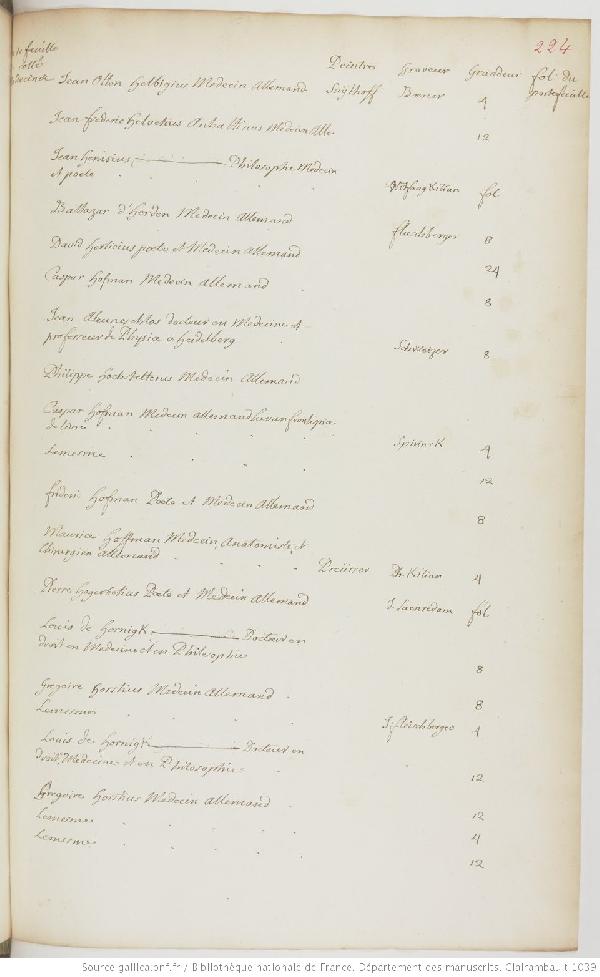 224
feuille
Peintre Graveur Grandeur fol. du
portefeuille
Jean Otton Helbigius Medecin Allemand Boener 4
Jean frederic Helvetius Anhaltinus Medecin Alle. 12
Jean Philosophe Medecin
Et poete Kilian fol
Baltazar d'Horden Medecin Allemand 8
David Herlicius poete et Medecin Allemand 24
Caspar Hofman Medecin Allemand 8
Jean docteur en Medecine et
professeur de Physia a Heidelberg Schweizer 8
Philippe Hochstetterus Medecin Allemand
Caspar Hofman Medecin allemand
de livre 4
Lemesme 12
frederic Hofman Poete et Medecin Allemand 8
Maurice Hoffman Medecin, Anatomiste, et
Chirurgien Allemand Kilian 4
Pierre Poete et Medecin Allemand J. Saenredam fol
Louis de Hornigk Docteur en
droit en Medecine et en Philosophie 8
Gregoire Horstius Medecin Allemand 8
Lemesme 4
Louis de Hornigk Docteur en
droit, Medecine et en Philosophie 12
Gregoire Horstius Medecin allemand 12
Lemesme 4
Lemesme 12
Source gallica.bnf.fr / Bibliothèque nationale de France. Département des manuscrits. Clairambault 1039